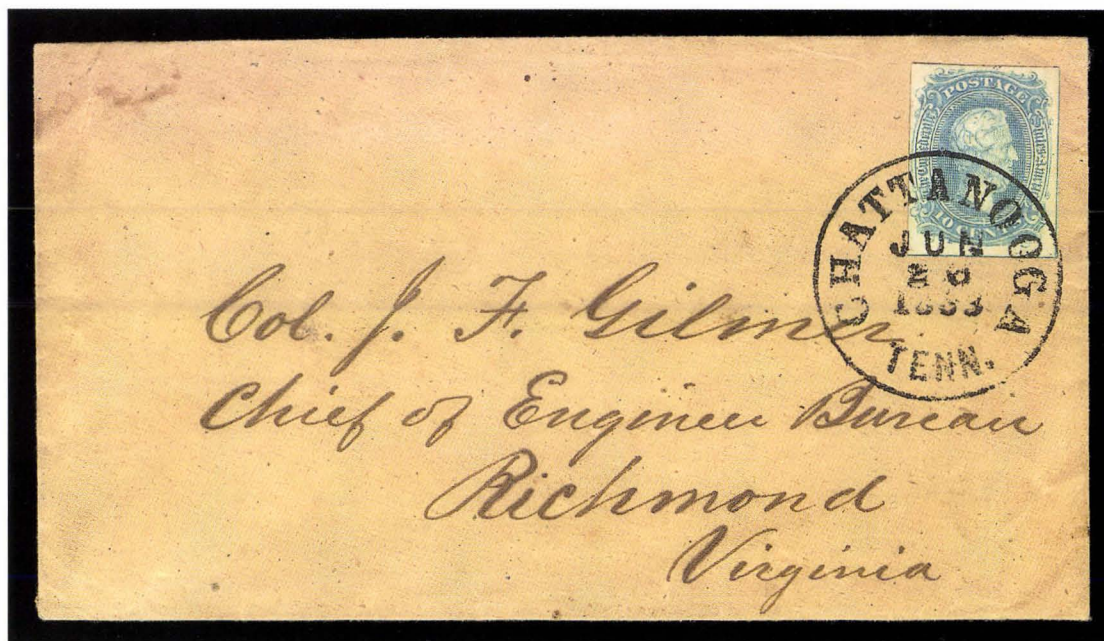 POSTAGE
TEN CENTS
CHATTANOOGA
JUN
1863
TENN.
Col. J. F. Gilmer
Chief of Engineer Bureau
Richmond
Virginia